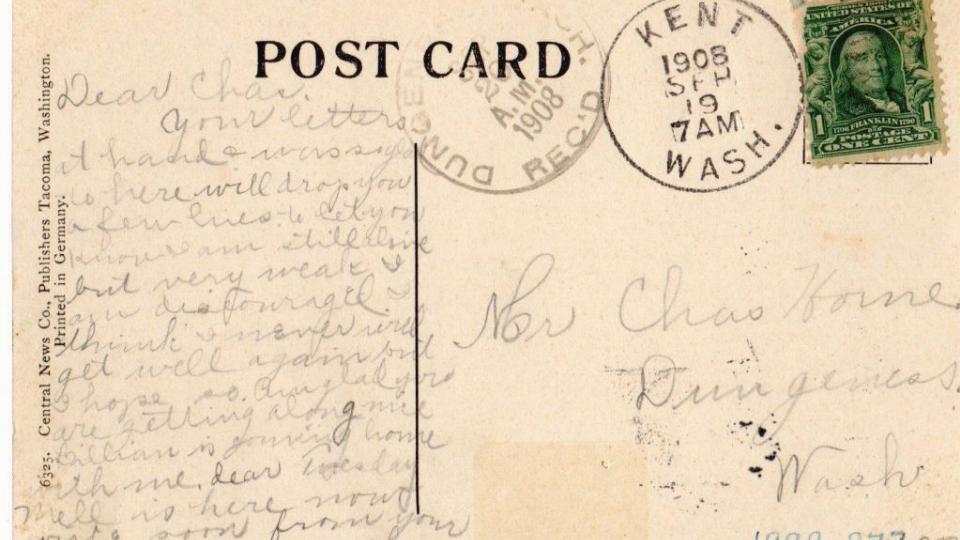 POST CARD
6325. Central News Co., Publishers Tacoma, Washington.
Printed in Germany.
DUNGEN CH.
A.M.
1908
REC'D
KENT
1908
SEP
19
7AM
WASH.
UNITED STATES OF
AMERICA
1706 FRANKLIN 1790
1 1
POSTAGE
ONE CENT
Dear Chas.
Your letters
at hand &
so here will drop you
a few lines to let you
know I am still alive
but very weak I
am discouraged I
think I never will
get well again but
I hope so. Am glad you
are getting along nice
Lillian is coming home
with me, dear Tuesday
Mell is here now
soon from your
Mr Chas Horne
Dungeness
Wash